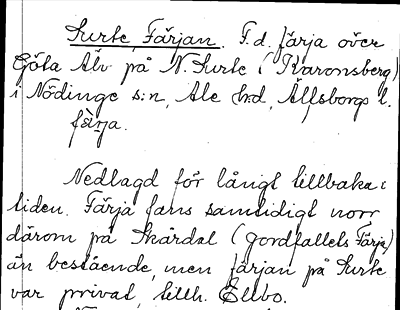 Surte, Färjan. F.d. färja över
Göta Älv på N. Surte (Karonsberg)
i Nödinge s:n, Ale hd, Älfsborgs l.
färja.
Nedlagd för långt tillbaka i
tiden. Färja fans samtidigt norr
därom på Skårdal (jordfallets Färja)
än bestående, men färjan på Surte
var privat, tillh. Ellbo.